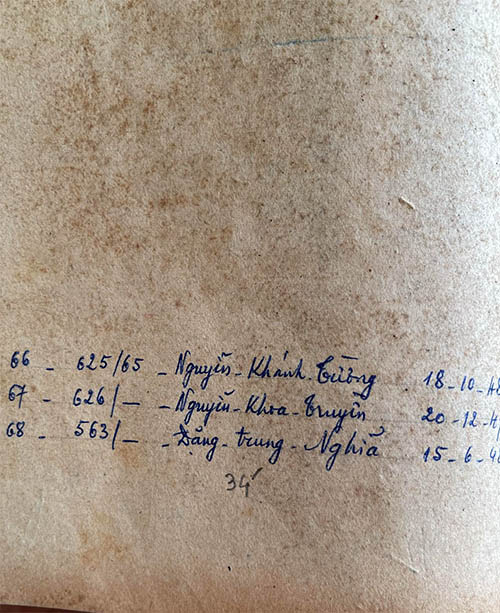 66 - 625/65 - Nguyễn - Khánh - Tường 18-10-48
67 - 626/— - Nguyễn - Khoa - Truyền 20-12-4
68 - 563/— - Đặng - trung - Nghĩa 15-6-4
34